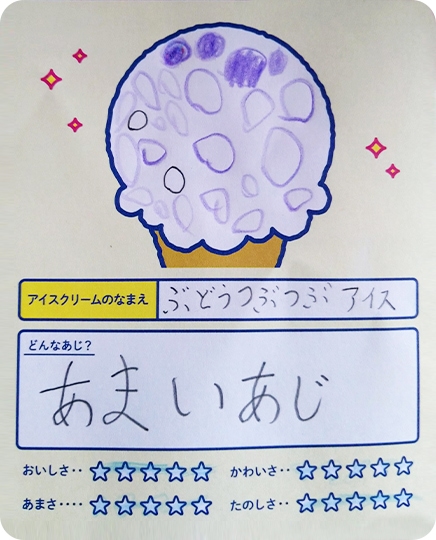 アイスクリームのなまえ ぶどうつぶつぶアイス
どんなあじ?
あまいあじ
おいしさ‥ ☆☆☆☆☆ かわいさ‥ ☆☆☆☆☆
あまさ‥‥ ☆☆☆☆☆ たのしさ‥ ☆☆☆☆☆